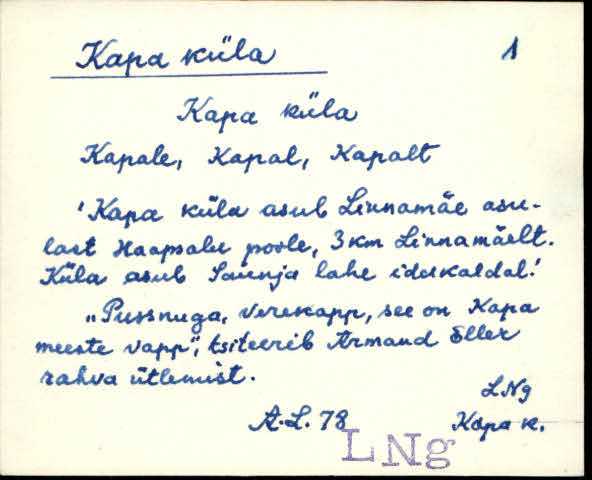 Kapa küla 1
Kapa küla
Kapale, Kapal, Kapalt
'Kapa küla asub Linnamäe asu-
last Haapsalu poole, 3 km Linnamäelt.
Küla asub Saunja lahe idakaldal.'
„Pussnuga, verekapp, see on Kapa
meeste vapp", tsiteerib Armand Eller
rahva ütlemist.
LNg
A.L. 78 Kapa k.
LNg